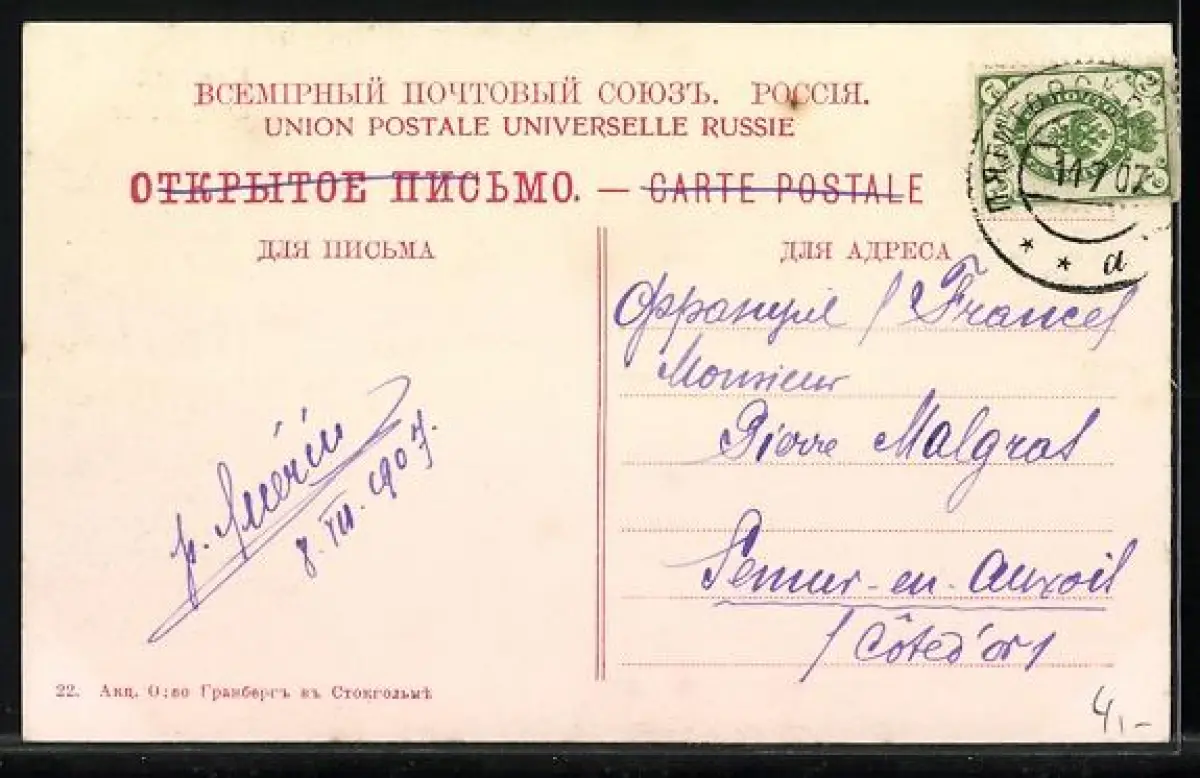 ВСЕМІРНЫЙ ПОЧТОВЫЙ СОЮЗЪ. РОССІЯ.
UNION POSTALE UNIVERSELLE RUSSIE
ОТКРЫТОЕ ПИСЬМО. — CARTE POSTALE
ДЛЯ ПИСЬМА
ДЛЯ АДРЕСА
11 7 07
a
Франція / France /
Monsieur
Pierre Malgras
Semur-en-Auxois
/ Côte d'or /
8. VII. 1907.
22. Акц. О;во Гранбергъ въ Стокгольмѣ
4,-